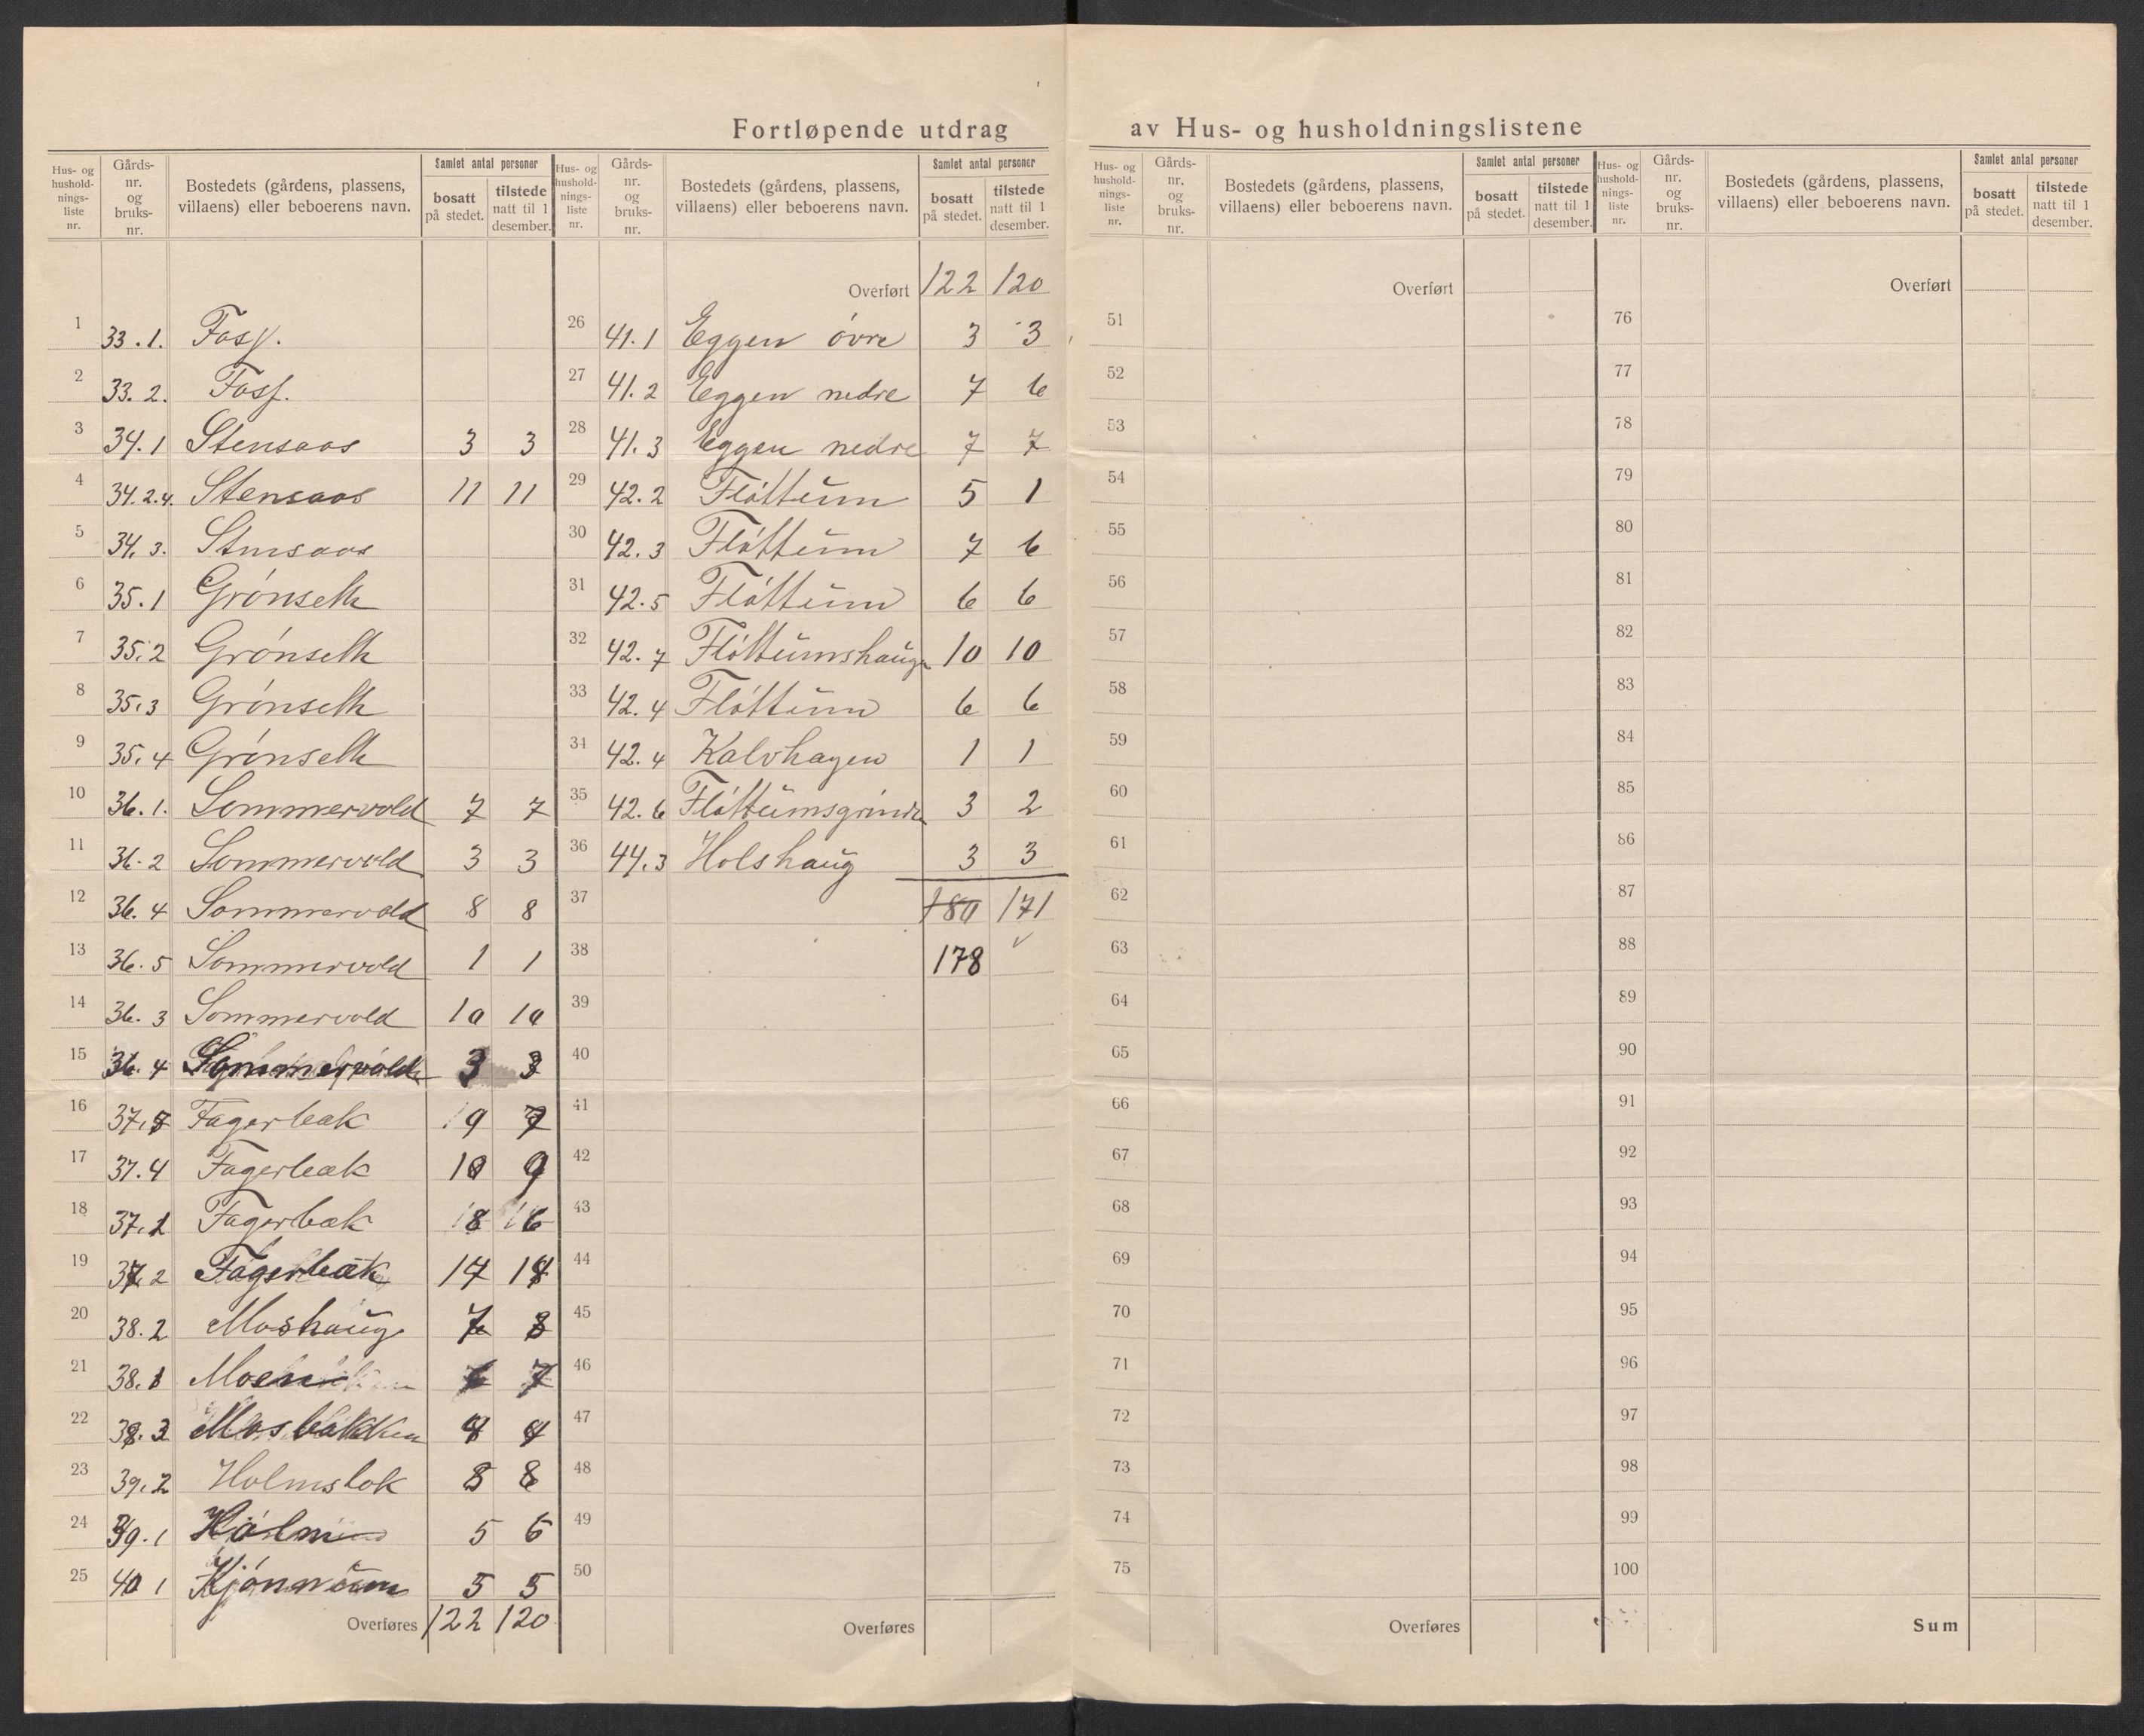 Fortløpende utdrag av Hus- og husholdningslistene
Hus- og husholdnings-liste nr. | Gårds-nr. og bruks-nr. | Bostedets (gårdens, plassens, villaens) eller beboerens navn. | Samlet antal personer bosatt på stedet. | tilstede natt til 1 desember.
1 33.1. Foss.
2 33.2. Foss.
3 34.1 Stensaas 3 3
4 34.2.4. Stensaas 11 11
5 34.3. Stensaas
6 35.1 Grónseth
7 35.2 Grónseth
8 35.3 Grónseth
9 35.4 Grónseth
10 36.1. Sommervold 7 7
11 36.2 Sommervold 3 3
12 36.4 Sommervold 8 8
13 36.5 Sommervold 1 1
14 36.3 Sommervold 10 10
15 36.4 Sommervold 3 3
16 37. Fagerbæk 9 7
17 37.4 Fagerbæk 10 9
18 37.1 Fagerbæk 8 6
19 37.2 Fagerbæk 17 18
20 38.2 Moshaug 8
21 38.1 Moen 7
22 38.3 Mosbakken 4 4
23 39.2 Holmsbak 8 8
24 39.1 Holm 5 6
25 40 1 5 5
Overføres 122 120
Hus- og husholdnings-liste nr. | Gårds-nr. og bruks-nr. | Bostedets (gårdens, plassens, villaens) eller beboerens navn. | Samlet antal personer bosatt på stedet. | tilstede natt til 1 desember.
Overført 122 120
26 41.1 Eggen óvre 3 3
27 41.2 Eggen nedre 7 6
28 41.3 Eggen nedre 7 7
29 42.2 Flóttum 5 1
30 42.3 Flóttum 7 6
31 42.5 Flóttum 6 6
32 42.7 Flóttumshaugen 10 10
33 42.4 Flóttum 6 6
34 42.4 Kalvhagen 1 1
35 42.6 Flóttumsgrinden 3 2
36 44.3 Holshaug 3 3
37 180 171
38 178 ✓
39
40
41
42
43
44
45
46
47
48
49
50
Overføres
Hus- og husholdnings-liste nr. | Gårds-nr. og bruks-nr. | Bostedets (gårdens, plassens, villaens) eller beboerens navn. | Samlet antal personer bosatt på stedet. | tilstede natt til 1 desember.
Overført
51
52
53
54
55
56
57
58
59
60
61
62
63
64
65
66
67
68
69
70
71
72
73
74
75
Overføres
Hus- og husholdnings-liste nr. | Gårds-nr. og bruks-nr. | Bostedets (gårdens, plassens, villaens) eller beboerens navn. | Samlet antal personer bosatt på stedet. | tilstede natt til 1 desember.
Overført
76
77
78
79
80
81
82
83
84
85
86
87
88
89
90
91
92
93
94
95
96
97
98
99
100
Sum